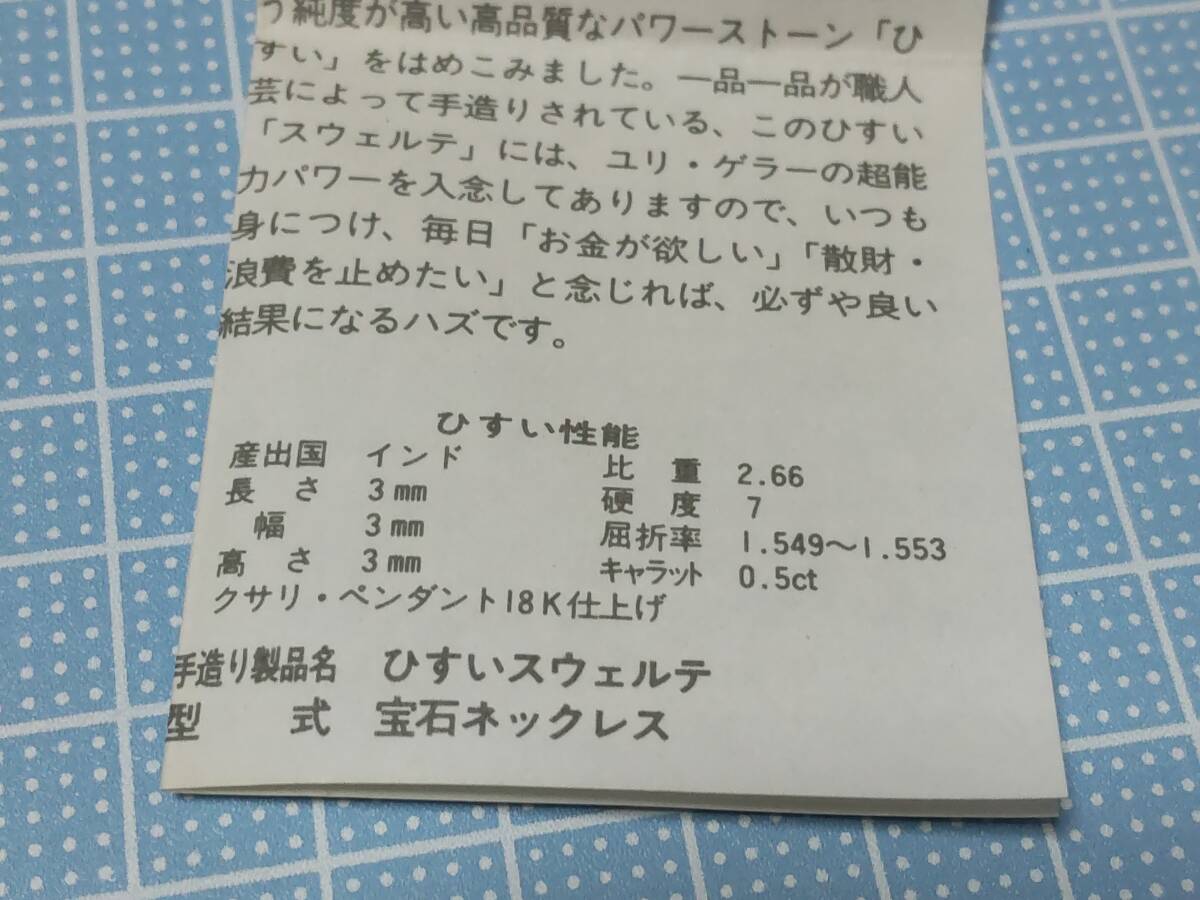 う純度が高い高品質なパワーストーン「ひ
すい」をはめこみました。一品一品が職人
芸によって手造りされている、このひすい
「スウェルテ」には、ユリ・ゲラーの超能
力パワーを入念してありますので、いつも
身につけ、毎日「お金が欲しい」「散財・
浪費を止めたい」と念じれば、必ずや良い
結果になるハズです。
ひすい性能
産出国 インド 比重 2.66
長さ 3mm 硬度 7
幅 3mm 屈折率 1.549〜1.553
高さ 3mm キャラット 0.5ct
クサリ・ペンダント18K仕上げ
手造り製品名 ひすいスウェルテ
型式 宝石ネックレス